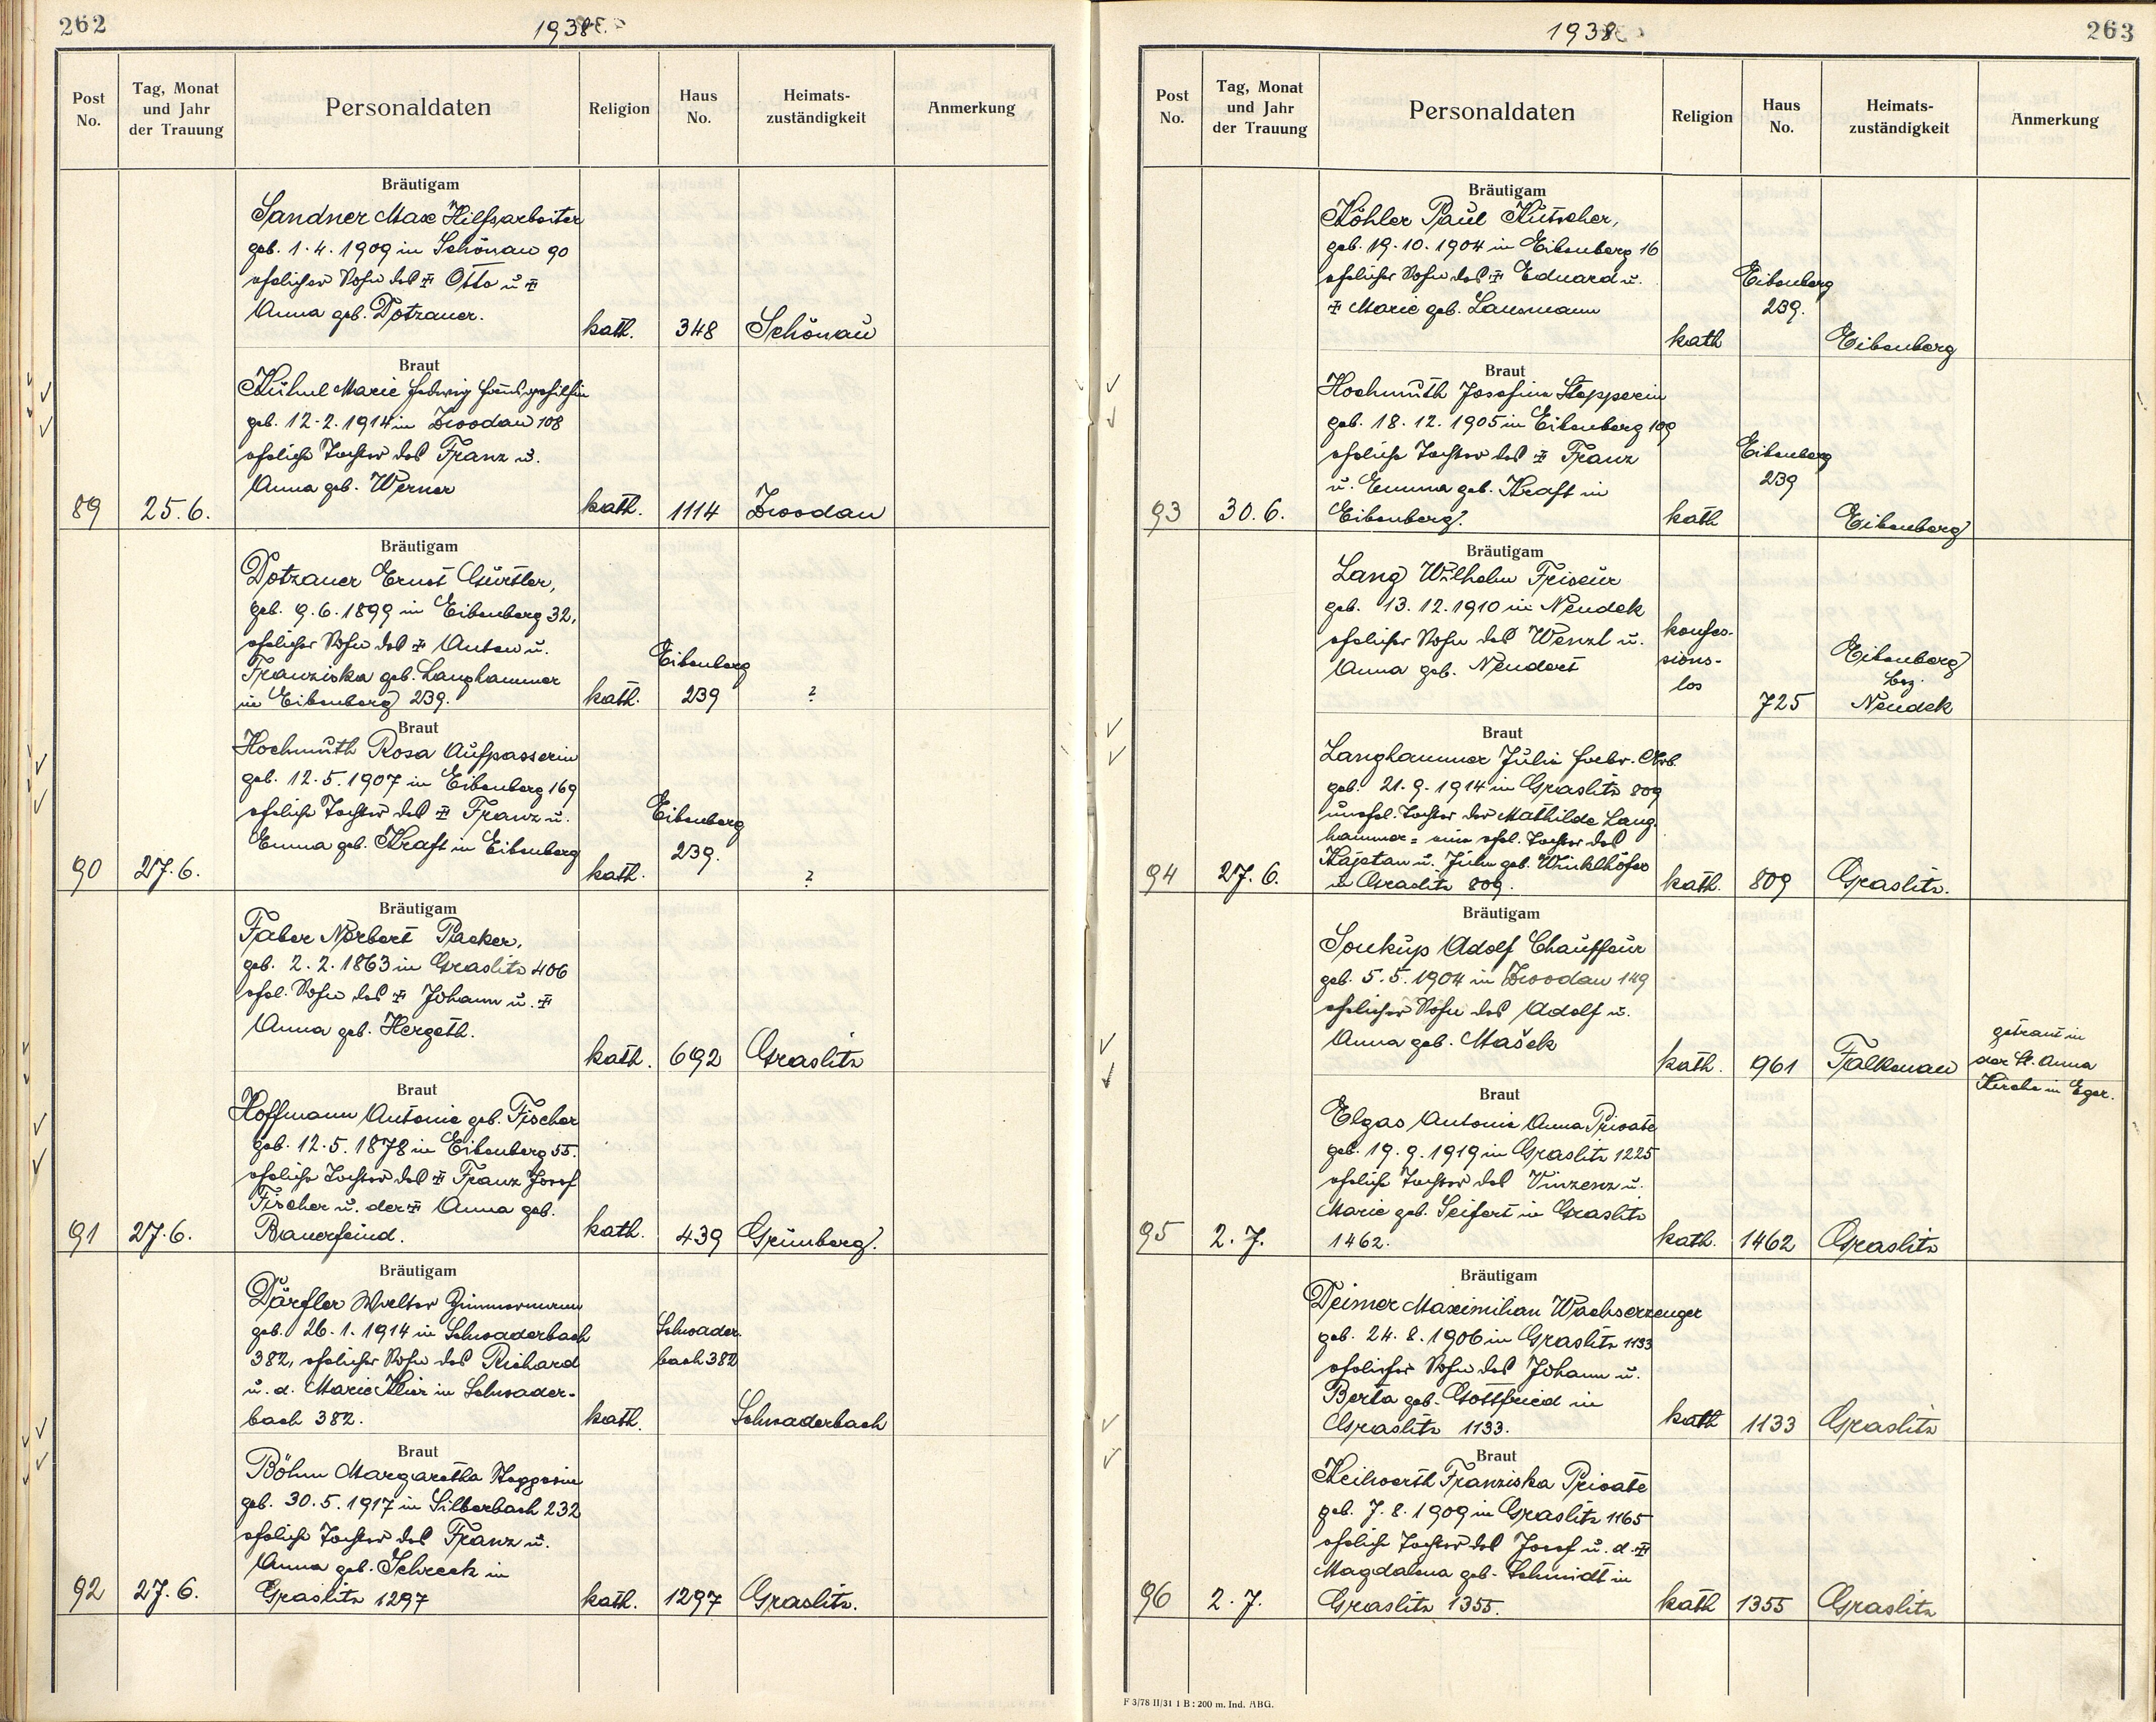 262
1938
Post No.
Tag, Monat und Jahr der Trauung
Personaldaten
Religion
Haus No.
Heimats-zuständigkeit
Anmerkung
Bräutigam
Sandner Max Hilfsarbeiter
geb. 1. 4. 1909 in Schönau 90
ehelicher Sohn des ✝ Otto u ✝
Anna geb. Dotzauer.
kath. 348 Schönau
Braut
Kühnl Marie Hedwig Hausgehilfin
geb. 12. 2. 1914 in Zwodau 108
eheliche Tochter des Franz u.
Anna geb. Werner
89 25. 6. kath. 1114 Zwodau
Bräutigam
Dotzauer Ernst Gürtler,
geb. 9. 6. 1899 in Eibenberg 32,
ehelicher Sohn des ✝ Anton u.
Franziska geb. Langhammer
in Eibenberg 239.
kath. Eibenberg 239 ?
Braut
Hochmuth Rosa Aufpasserin
geb. 12. 5. 1907 in Eibenberg 169
eheliche Tochter des ✝ Franz u.
Emma geb. Kraft in Eibenberg
90 27. 6. kath. Eibenberg 239. ?
Bräutigam
Faber Norbert Packer,
geb. 2. 2. 1863 in Graslitz 406
ehel. Sohn des ✝ Johann u. ✝
Anna geb. Hergeth.
kath. 692 Graslitz
Braut
Hoffmann Antonie geb. Fischer
geb. 12. 5. 1878 in Eibenberg 55.
eheliche Tochter des ✝ Franz Josef
Fischer u. der ✝ Anna geb.
Bauerfeind.
91 27. 6. kath. 439 Grünberg.
Bräutigam
Dörfler Walter Zimmermann
geb. 26. 1. 1914 in Schwaderbach
382, ehelicher Sohn des Richard
u. d. Marie Klier in Schwader-
bach 382.
kath. Schwader-bach 382 Schwaderbach
Braut
Böhm Margaretha Stepperin
geb. 30. 5. 1917 in Silberbach 232
eheliche Tochter des Franz u.
Anna geb. Schreck in
Graslitz 1297
92 27. 6. kath. 1297 Graslitz.
263
1938
Post No.
Tag, Monat und Jahr der Trauung
Personaldaten
Religion
Haus No.
Heimats-zuständigkeit
Anmerkung
Bräutigam
Köhler Paul Kutscher,
geb. 19. 10. 1904 in Eibenberg 16
ehelicher Sohn des ✝ Eduard u.
✝ Marie geb. Lausmann
kath Eibenberg 239. Eibenberg
Braut
Hochmuth Josefine Stepperin
geb. 18. 12. 1905 in Eibenberg 109
eheliche Tochter des ✝ Franz
u. Emma geb. Kraft in
Eibenberg.
93 30. 6. kath Eibenberg 239 Eibenberg
Bräutigam
Lang Wilhelm Friseur
geb. 13. 12. 1910 in Neudek
ehelicher Sohn des Wenzl u.
Anna geb. Neudert
konfes-sions-los 725 Eibenberg Bez. Neudek
Braut
Langhammer Julie Fabr. Arb.
geb. 21. 9. 1914 in Graslitz 809
unehel. Tochter der Mathilde Lang
hammer = eine ehel. Tochter des
Kajetan u. Julie geb. Winklhöfer
in Graslitz 809.
94 27. 6. kath. 809 Graslitz.
Bräutigam
Soukup Adolf Chauffeur
geb. 5. 5. 1904 in Zwodau 149
ehelicher Sohn des Adolf u.
Anna geb. Mašek
kath. 961 Falkenau
getraut in
der St. Anna
Kirche in Eger.
Braut
Elgas Antonie Anna Private
geb. 19. 9. 1919 in Graslitz 1225
eheliche Tochter des Vinzenz u.
Marie geb. Seifert in Graslitz
1462.
95 2. 7. kath. 1462 Graslitz
Bräutigam
Deimer Maximilian Wachserzeuger
geb. 24. 8. 1906 in Graslitz 1133
ehelicher Sohn des Johann u.
Berta geb. Gottfried in
Graslitz 1133.
kath 1133 Graslitz
Braut
Keilwerth Franziska Private
geb. 7. 8. 1909 in Graslitz 1165
eheliche Tochter des Josef u. d. ✝
Magdalena geb. Schmidt in
Graslitz 1355.
96 2. 7. kath 1355 Graslitz
F 3/78 II/31 1 B : 200 m. Ind. ABG.